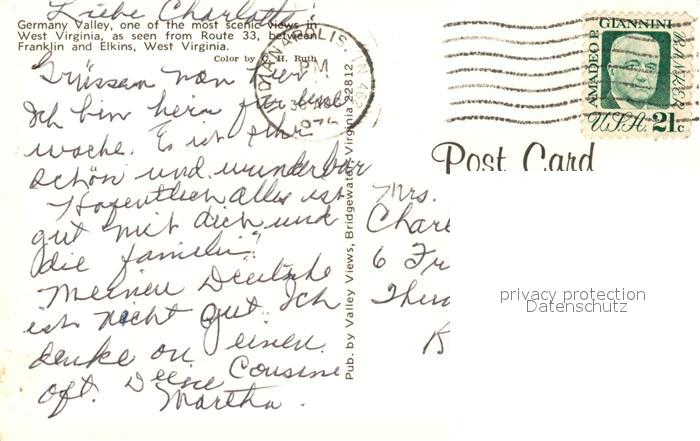 Liebe Charlott:
Germany Valley, one of the most scenic views in
West Virginia, as seen from Route 33, between
Franklin and Elkins, West Virginia.
Color by C. H. Ruth
Grüssen von hier
Ich bin hern für eine
woche. Es ist sehr
schön und wunderbar
Hofentlich alles ist
gut mit dich und
die familie.
Meinen Deutsche
ist nicht gut. Ich
denke on einen
oft. Deine Cousine
Martha.
Pub. by Valley Views, Bridgewater, Virginia 22812.
INDIANAPOLIS, IN 462
PM
AMADEO P. GIANNINI
BANKER
USA 21c
Post Card
Mrs.
Charl
6 Fr
privacy protection
Datenschutz